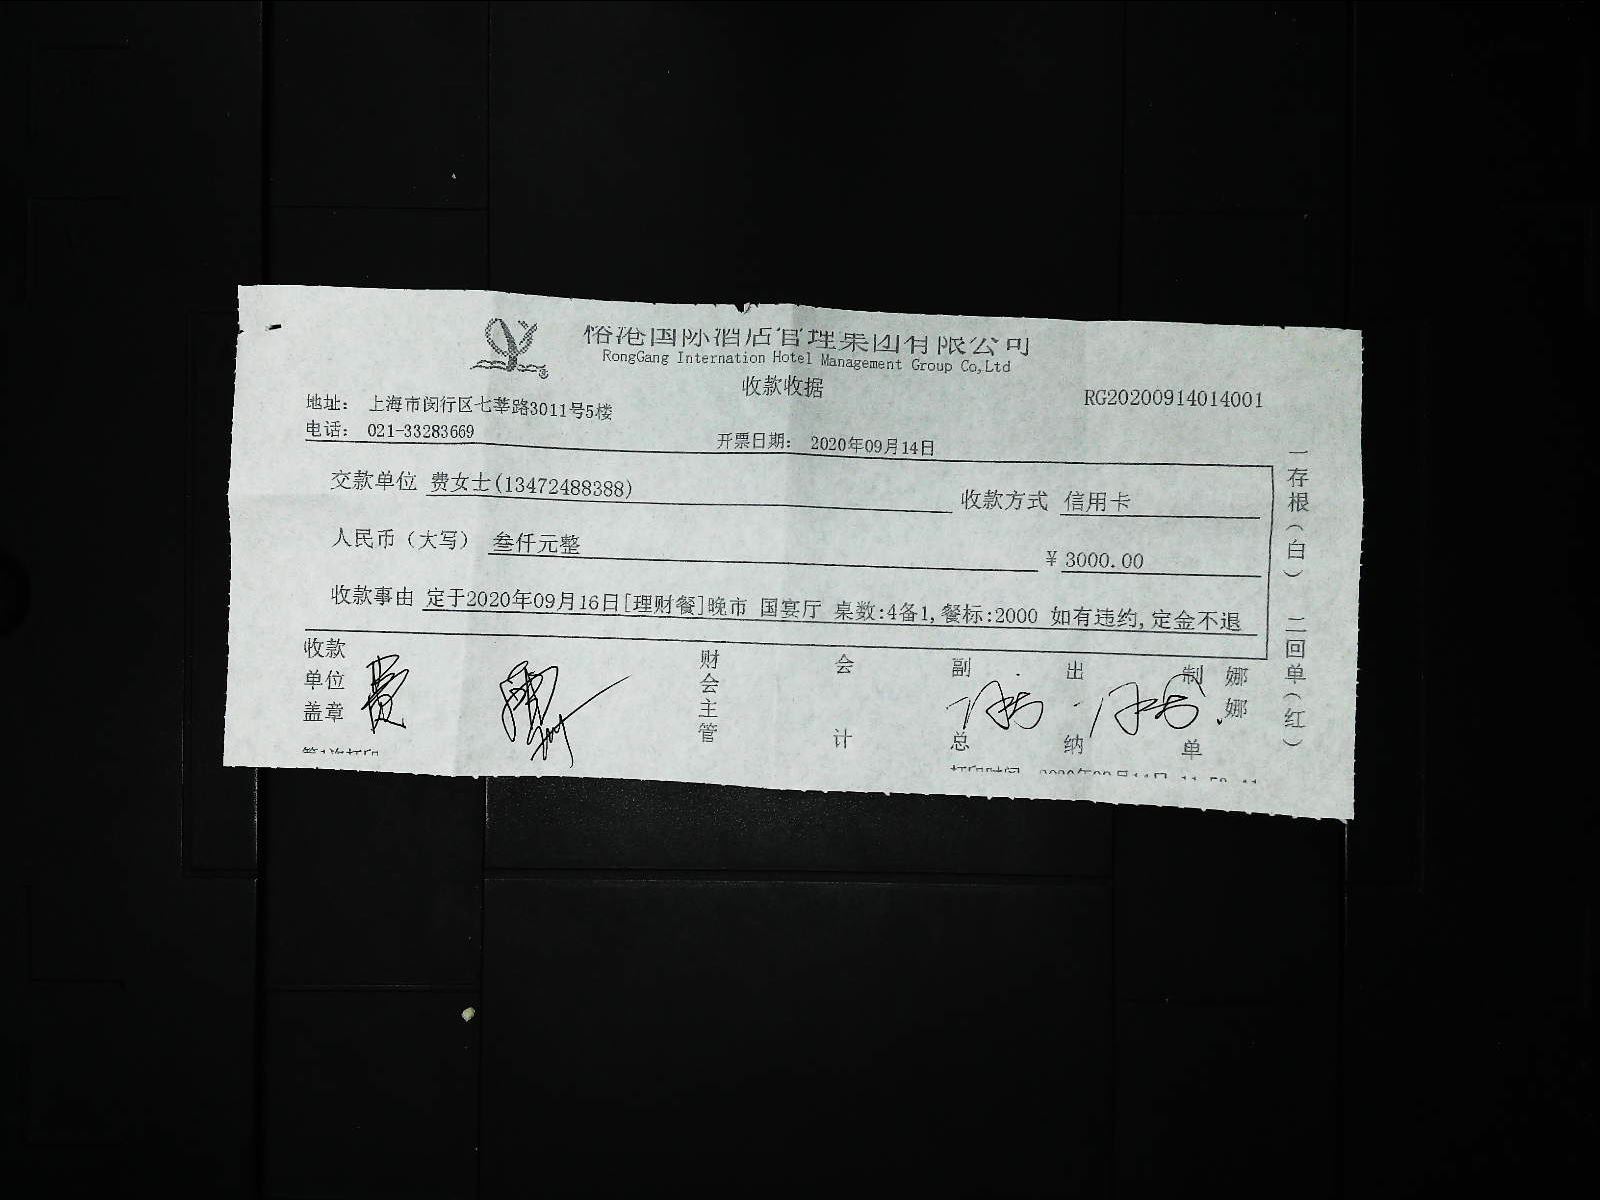 裕港国际酒店管理集团有限公司
RongGang Internation Hotel Management Group Co,Ltd
收款收据
RG20200914014001
地址： 上海市闵行区七莘路3011号5楼
电话： 021-33283669
开票日期： 2020年09月14日
交款单位 费女士(13472488388)
收款方式 信用卡
人民币（大写） 叁仟元整
¥3000.00
收款事由 定于2020年09月16日[理财餐]晚市 国宴厅 桌数:4备1,餐标:2000 如有违约,定金不退
一存根（白） 二回单（红）
收款单位盖章 费
财会主管
会计
副总
出纳
制单
娜娜
第1次打印
打印时间